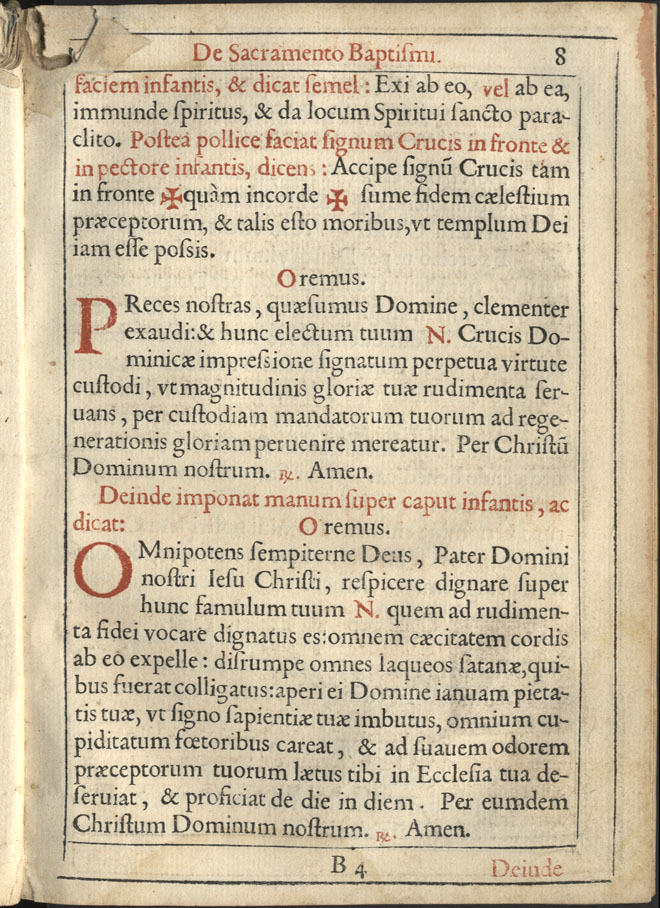 De Sacramento Baptiſmi. 8
faciem infantis, & dicat ſemel : Exi ab eo, vel ab ea,
immunde ſpiritus, & da locum Spiritui ſancto para-
clito. Poſteà pollice faciat ſignum Crucis in fronte &
in pectore infantis, dicens : Accipe ſignũ Crucis tàm
in fronte ✠ quàm incorde ✠ ſume fidem cæleſtium
præceptorum, & talis eſto moribus, vt templum Dei
iam eſſe poſsis.
Oremus.
PReces noſtras, quæſumus Domine, clementer
exaudi: & hunc electum tuum N. Crucis Do-
minicæ impreſsione ſignatum perpetua virtute
cuſtodi, vt magnitudinis gloriæ tuæ rudimenta ſer-
uans, per cuſtodiam mandatorum tuorum ad rege-
nerationis gloriam peruenire mereatur. Per Chriſtũ
Dominum noſtrum. ℟. Amen.
Deinde imponat manum ſuper caput infantis, ac
dicat: Oremus.
OMnipotens ſempiterne Deus, Pater Domini
noſtri Ieſu Chriſti, reſpicere dignare ſuper
hunc famulum tuum N. quem ad rudimen-
ta fidei vocare dignatus es: omnem cæcitatem cordis
ab eo expelle : diſrumpe omnes laqueos ſatanæ, qui-
bus fuerat colligatus: aperi ei Domine ianuam pieta-
tis tuæ, vt ſigno ſapientiæ tuæ imbutus, omnium cu-
piditatum fœtoribus careat, & ad ſuauem odorem
præceptorum tuorum lætus tibi in Eccleſia tua de-
ſeruiat, & proficiat de die in diem. Per eumdem
Chriſtum Dominum noſtrum. ℟. Amen.
B 4 Deinde